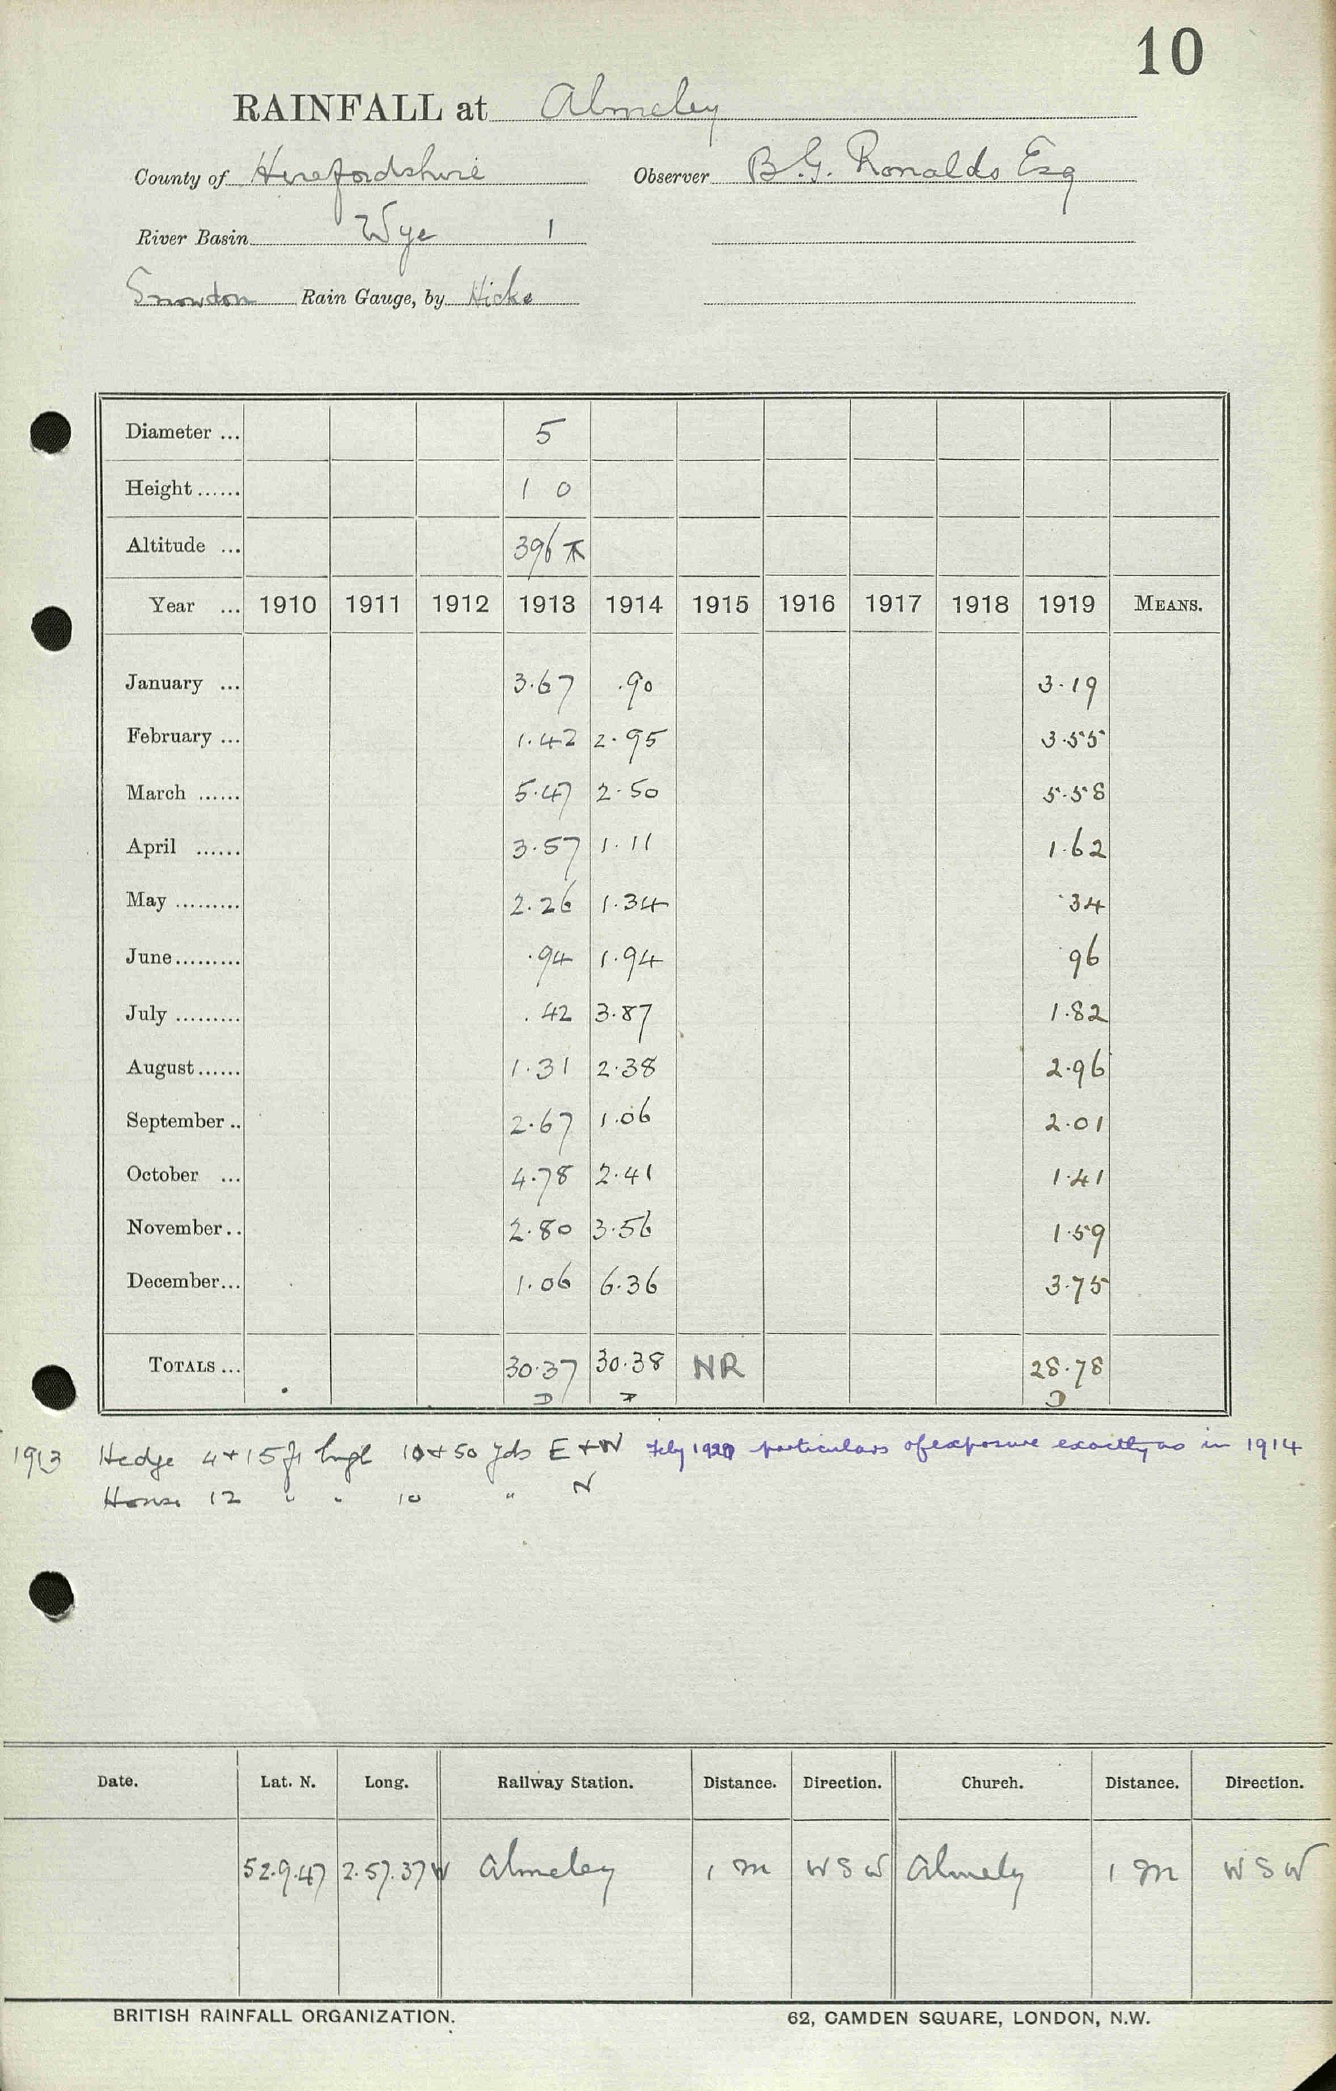 10
RAINFALL at Almeley
County of Herefordshire Observer B.G. Ronalds Esq
River Basin Wye 1
Snowdon Rain Gauge, by Hicks
Diameter ... 5
Height ...... 1 0
Altitude ... 396
Year ... 1910 1911 1912 1913 1914 1915 1916 1917 1918 1919 MEANS.
January ... 3.67 .90 3.19
February ... 1.42 2.95 3.55
March ...... 5.47 2.50 5.58
April ...... 3.57 1.11 1.62
May ......... 2.26 1.34 .34
June ......... .94 1.94 96
July ......... .42 3.87 1.82
August ...... 1.31 2.38 2.96
September .. 2.67 1.06 2.01
October ... 4.78 2.41 1.41
November .. 2.80 3.56 1.59
December ... 1.06 6.36 3.75
TOTALS ... 30.37 30.38 NR 28.78
D D
1913 Hedge 4 + 15 ft high 10 + 50 yds E + N Feby 1920 particulars of exposure exactly as in 1914
House 12 " " 10 " N
Date. Lat. N. Long. Railway Station. Distance. Direction. Church. Distance. Direction.
52.9.47 2.57.37W Almeley 1 m WSW Almely 1 m WSW
BRITISH RAINFALL ORGANIZATION. 62, CAMDEN SQUARE, LONDON, N.W.